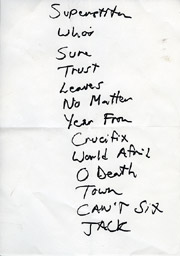 Superstition
Who's
Sure
Trust
Leaves
No Matter
Year From
Crucifix
World
O Death
Town
CAN'T SIX
JACK